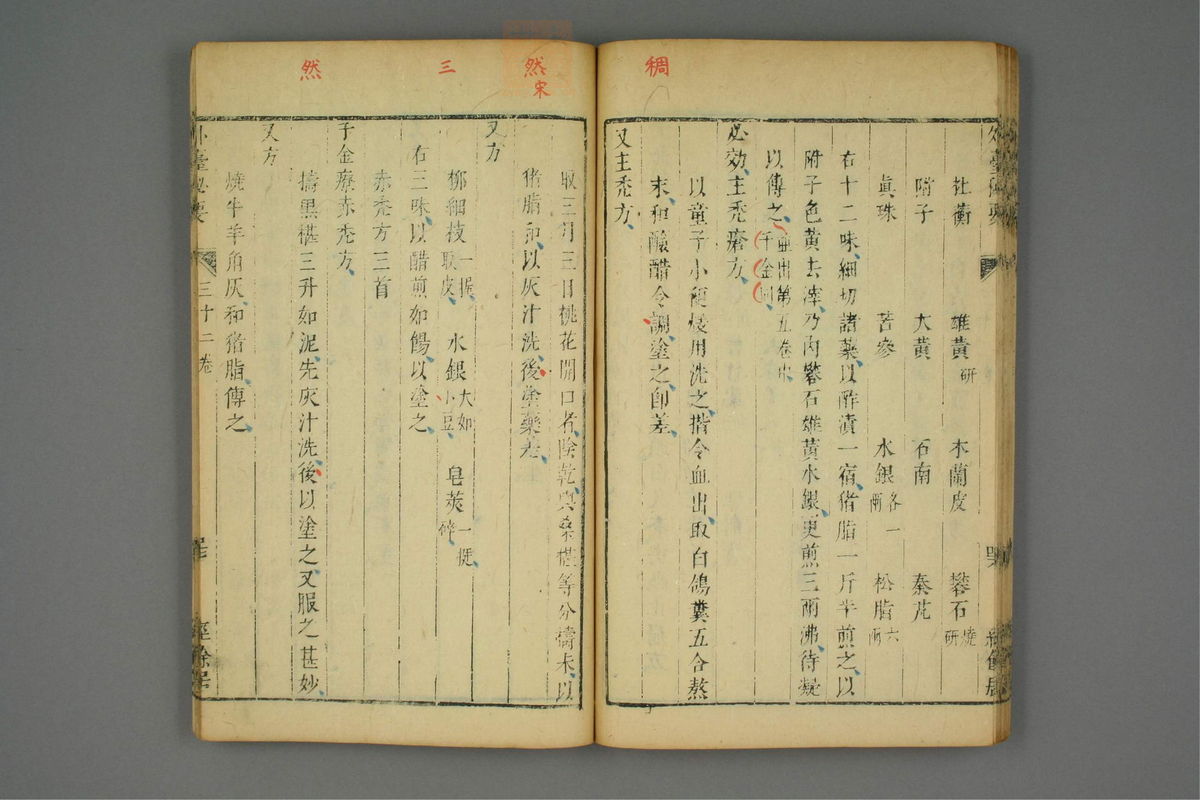 稠
杜衡 雄黃研 木蘭皮 礬石燒研
附子 大黃 石南 秦艽
眞珠 苦參 水銀各一兩 松脂六兩
右十二味細切諸藥以酢漬一宿猪脂一斤半煎之以
附子色黃去滓乃內礬石雄黃水銀更煎三兩沸待凝
以傅之並出第五卷中千金同
必効主禿瘡方
以童子小便煖用洗之揩令血出取白鴿糞五合熬
末和醶醋令調塗之卽差
又主禿方
然宋
三
然
取三月三日桃花開口者陰乾與桑椹等分擣末以
猪脂和以灰汁洗後塗藥差
又方
柳細枝一握取皮 水銀大如小豆 皂莢一挺碎
右三味以醋煎如餳以塗之
赤禿方三首
千金療赤禿方
擣黑椹三升如泥先灰汁洗後以塗之又服之甚妙
又方
燒牛羊角灰和猪脂傅之
外臺秘要 三十二卷 經餘居